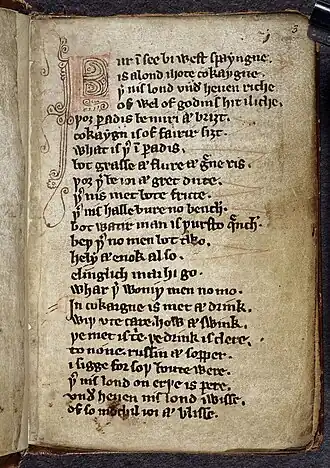 3
Fur ī see bi west spayngne.
is a lond ihote cokaygne.
þ͛ nis lond vnd͛ heuen riche
of wel of godnis hit iliche.
þoȝ p̲adis be miri ⁊ briȝt.
cokaygn is of fairir siȝt.
what is þ͛ ī p̲adis.
bot grasse ⁊ flure ⁊ g͛ne ris.
þoȝ þ͛ be ioi ⁊ gret dute.
þ͛ nis met bote frute.
þ͛ nis halle bure no bench.
bot watir man is þursto q̄nch.
beþ þ͛ no men bot two.
hely ⁊ enok also.
elinglich mai hi go.
whar þ͛ woniþ men no mo.
In cokaigne is met ⁊ drink.
wiþ vte care. how ⁊ swink.
þe met is t͛e. þe drink is clere.
to none. russin ⁊ sopper.
i sigge for soþ boute were.
þ͛ nis lond on erþe is pere.
vnd͛ heuen nis lond iwisse.
of so mochil ioi ⁊ blisse.